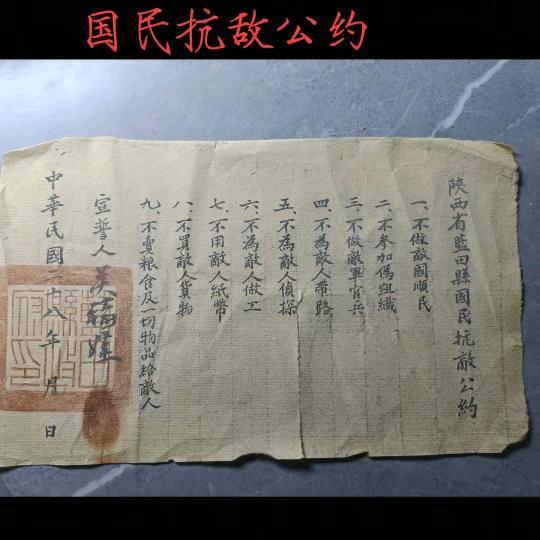 国民抗敌公约
陝西省藍田縣國民抗敵公約
一、不做敵國順民
二、不參加偽組織
三、不做敵軍官兵
四、不為敵人带路
五、不為敵人偵探
六、不為敵人做工
七、不用敵人紙幣
八、不買敵人貨物
九、不賣粮食及一切物品給敵人
宣誓人
中華民國二十八年 月 日